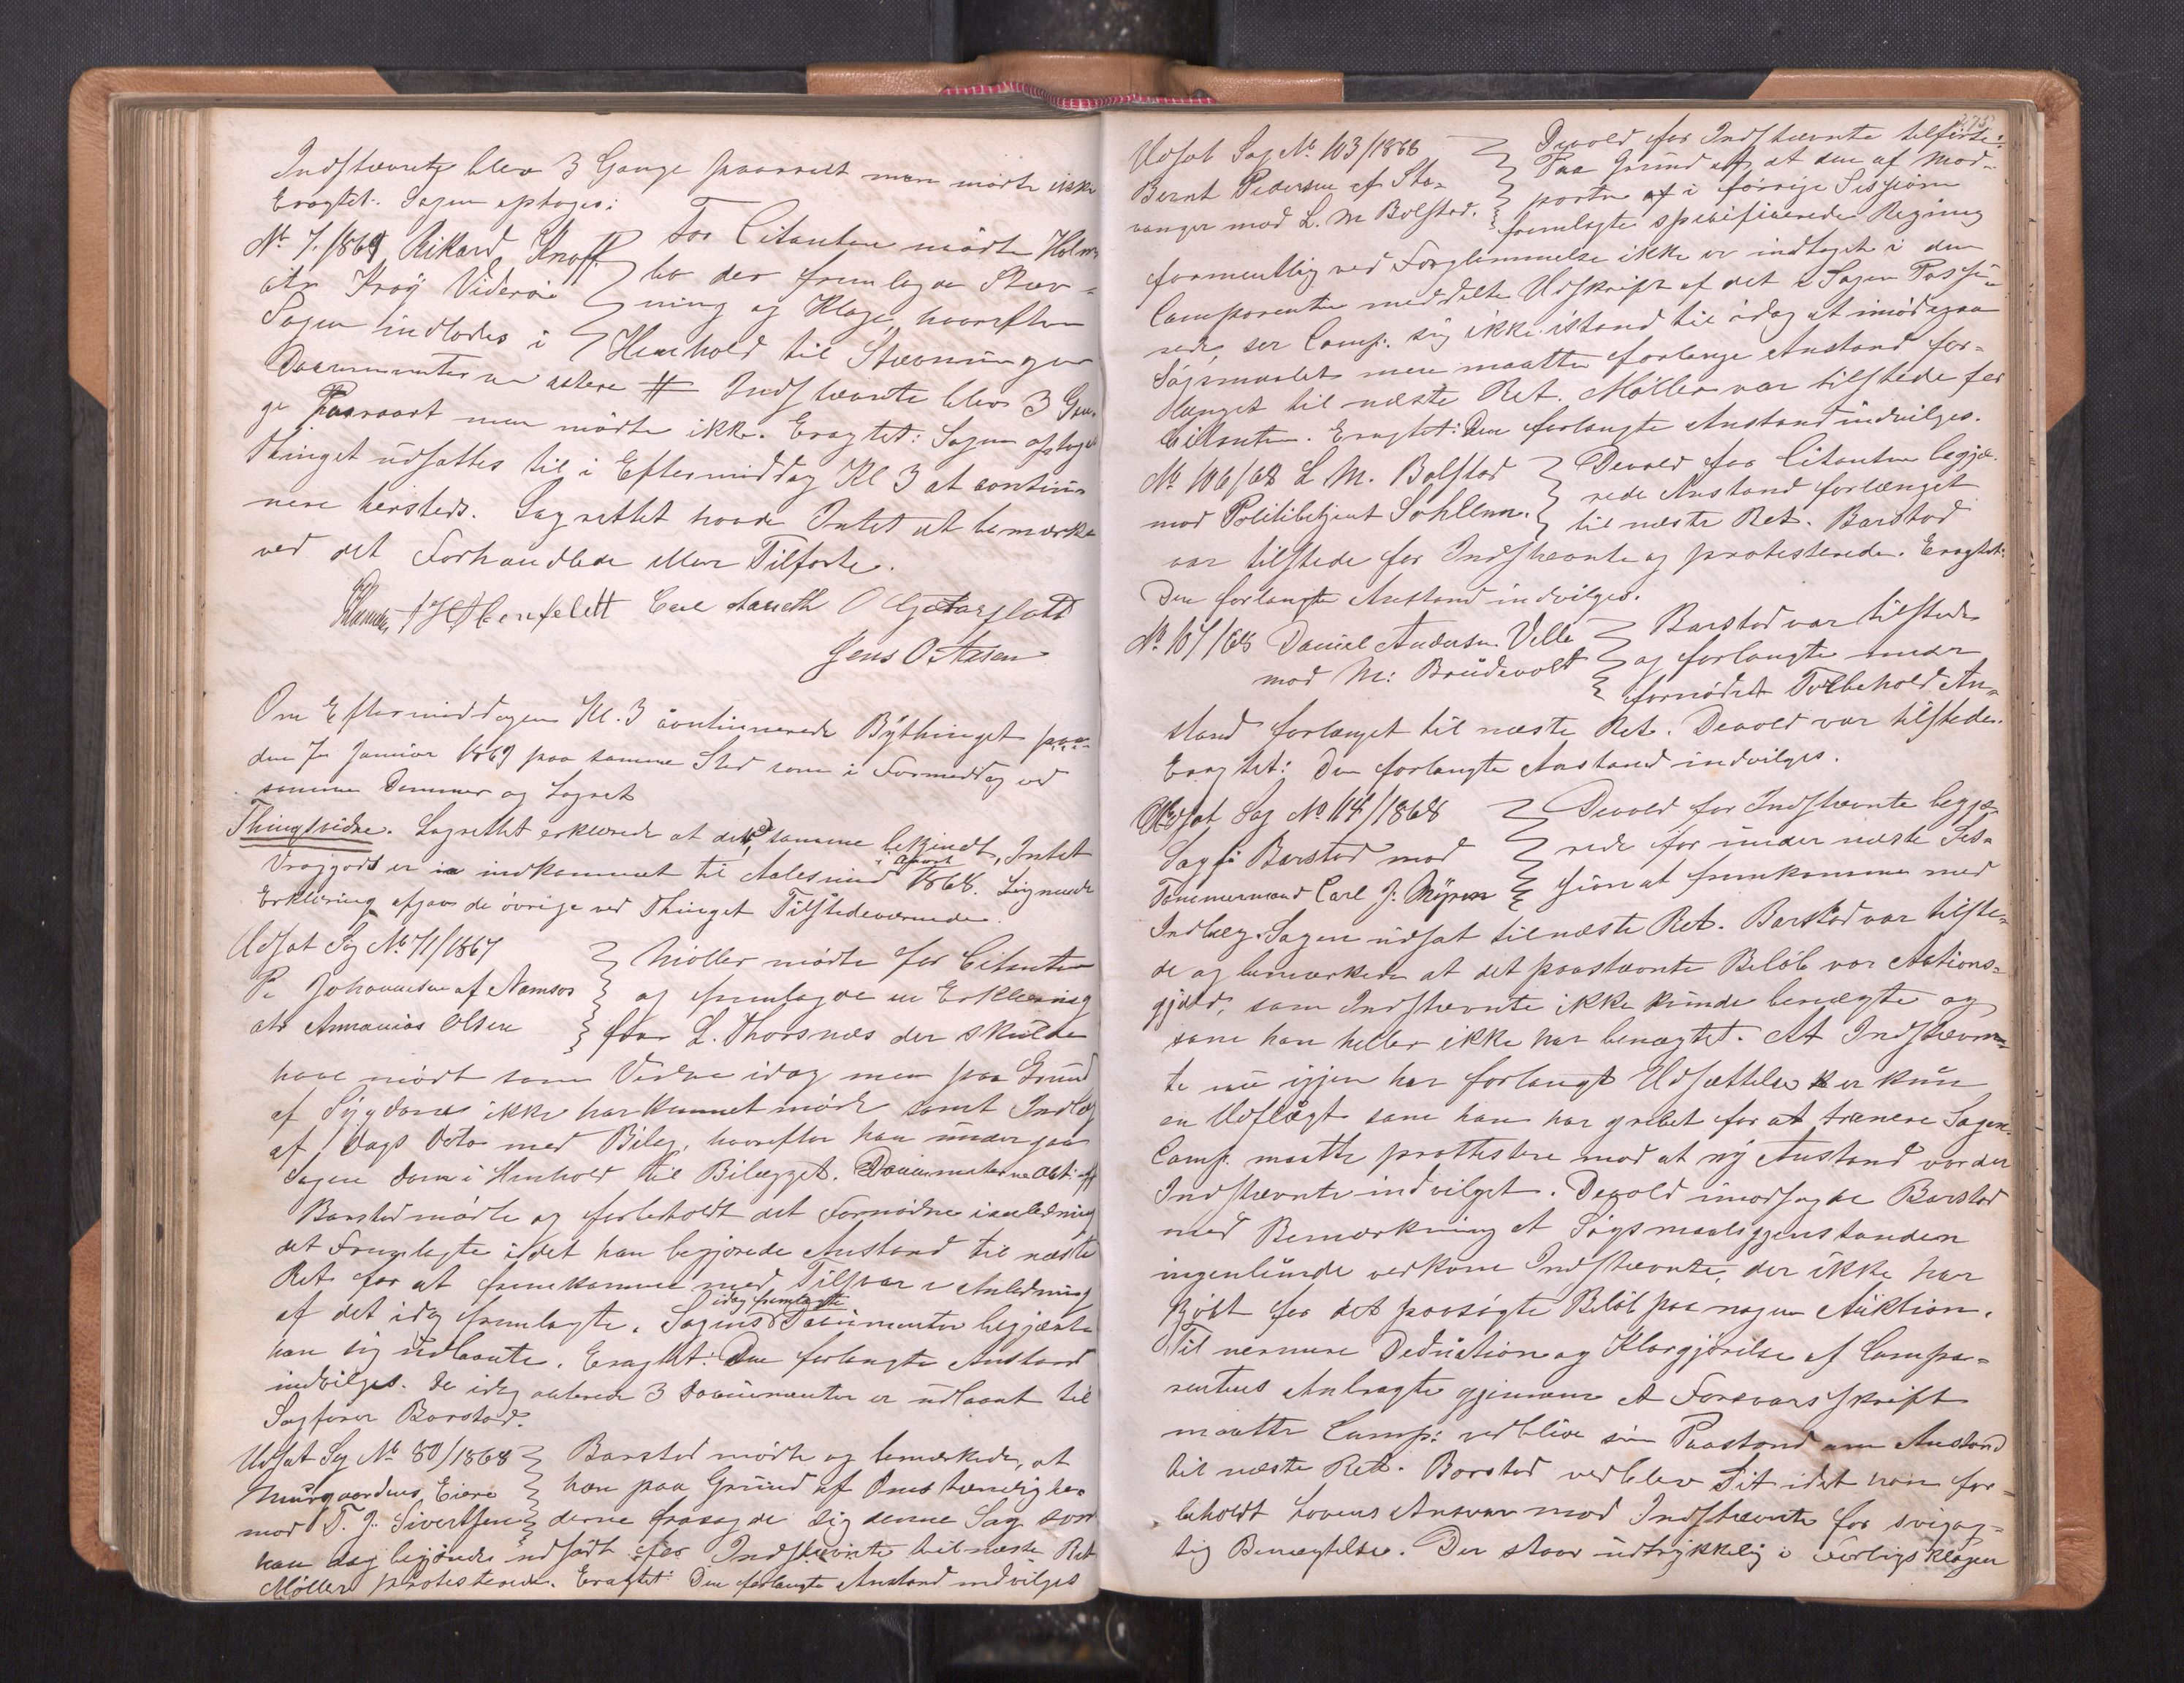 Indstævnte blev 3 Gange paaraabt men mødte ikke
Eragtet: Sagen optages:
No 7/1869 Rikard Knoff
ctr Kroÿ Viderøe
For Citanten mødte Holm-
bo der fremlagde Stæv-
ning og Klage, hvorefter
Sagen indlodes i Henhold til Stævningen
Documenterne acteres # Indstævnte blev 3 Gan-
ge Paaraabt men mødte ikke. Eragtet: Sagen optages
Thinget udsattes til i Eftermiddag Kl 3 at continu-
nere hersteds. Lagrettet havde Intet at bemærke
ved det Forhandlede eller Tilførte.
Carl Aarseth O Gjetarflaatt
Jens O. Aasen
Om Eftermiddagen Kl. 3 continuerede Bÿthinget paa
den 7 Januar 1869 paa samme Sted som i Formiddag ved
samme Dommer og Lagret
Thingsvidne. Lagrettet erklærede at det, samme bekjendt, Intet
Vraggods er indkommet til Aalesund i Aaret 1868. Lignende
Erklæring afgav de øvrige ved Thinget Tilstedeværende.
Udsat Sag No 71/1867
P. Johannesen af Namsos
ctr Annanias Olsen
Møller mødte for Citanten
og fremlagde en Erklæring
fra L. Thorsnæs der skulde
have mødt som Vidne idag men paa Grund
af Sÿgdom ikke har kunnet møde samt Indlæg
af Dags Dato med Bilag, hvorefter han undergav
Sagen Dom i Henhold til Bilægget. Documenterne act: #
Barstad mødte og forbeholdt det Fornødne ianledning
det Fremlagte idet han begjærede Anstand til næste
Ret for at fremkomme med Tilsvar i Anledning
af det idag fremlagte. Sagens idag fremlagte Documenter begjærte
han sig udlaante. Eragtet: Den forlangte Anstand
indvilges. De idag acterede 3 Documenter er udlaant til
Sagfører Barstad.
Udsat Sag No 80/1868
Murgaardens Eiere
mod T. J. Sivertsen
Barstad mødte og bemærkede, at
han paa Grund af Omstændighe-
derne frasagde sig denne Sag som
han dog begjærede udsadt for Indstævnte til næste Ret
Møller protesterede. Eragtet: Den forlangte Anstand indvilges
275
Udsat Sag No 103/1868
Bernt Pedersen af Sta-
vanger mod L. M Bolstad.
Devold for Indstævnte tilførte:
Paa Grund af at den af Mod-
parten i forrige Session
fremlagte specificerede Regning
formentlig ved Forglemmelse ikke er indtaget i den
Comparenten meddelte Udskrift af det i Sagen Passe-
rede, ser Comp: sig ikke istand til idag at imødegaa
Søgsmaalet men maatte forlange Anstand for-
længet til næste Ret. Møller var tilstede for
Citanten. Eragtet: Den forlangte Anstand indvilges.
No 106/68 L M. Bolstad
mod Politibetjent Sohllmn.
Devold for Citanten begjæ-
rede Anstand forlænget
til næste Ret. Barstad
var tilstede for Indstævnte og protesterede. Eragtet:
Den forlangte Anstand indvilges.
No 107/68 Daniel Andersen Velle
mod M: Brudevolt
Barstad var tilstede
og forlangte under
fornødent Forbehold An-
stand forlænget til næste Ret. Devold var tilstede.
Eragtet: Den forlangte Anstand indvilges.
Udsat Sag No 114/1868
Sagf: Barstad mod
Tømmermand Carl J: Mÿren
Devold for Indstævnte begjæ-
rede for under næste Ses-
sion at fremkomme med
Indlæg Sagen udsat til næste Ret. Barstad var tilste-
de og bemærkede at det paastævnte Beløb var Actions-
gjæld, som Indstævnte ikke kunde benægte og
som han heller ikke har benægtet. At Indstævn-
te nu igjen har forlangt Udsættelse er kun
en Udflugt som han har grebet for at trænere Sagen.
Comp. maatte prottestere mod at nÿ Anstand vorder
Indstævnte indvilget. Devold imodsagde Barstad
med Bemærkning at Søgsmaalsgjenstanden
ingenlunde vedkom Indstævnte, der ikke har
kjøbt for det paasøgte Beløb paa nogen Auktion.
Til nermere Deduction og Klargjørelse af Compa-
rentens Anbragte gjennem et Forsvarsskrift
maatte Comp: vedblive sin Paastand om Anstand
til næste Ret. Barstad vedblev Sit idet han for-
beholdt Lovens Ansvar mod Indstævnte for svigag-
tig Benægtelse. Der staar udtrÿkkelig i Forligsklagen